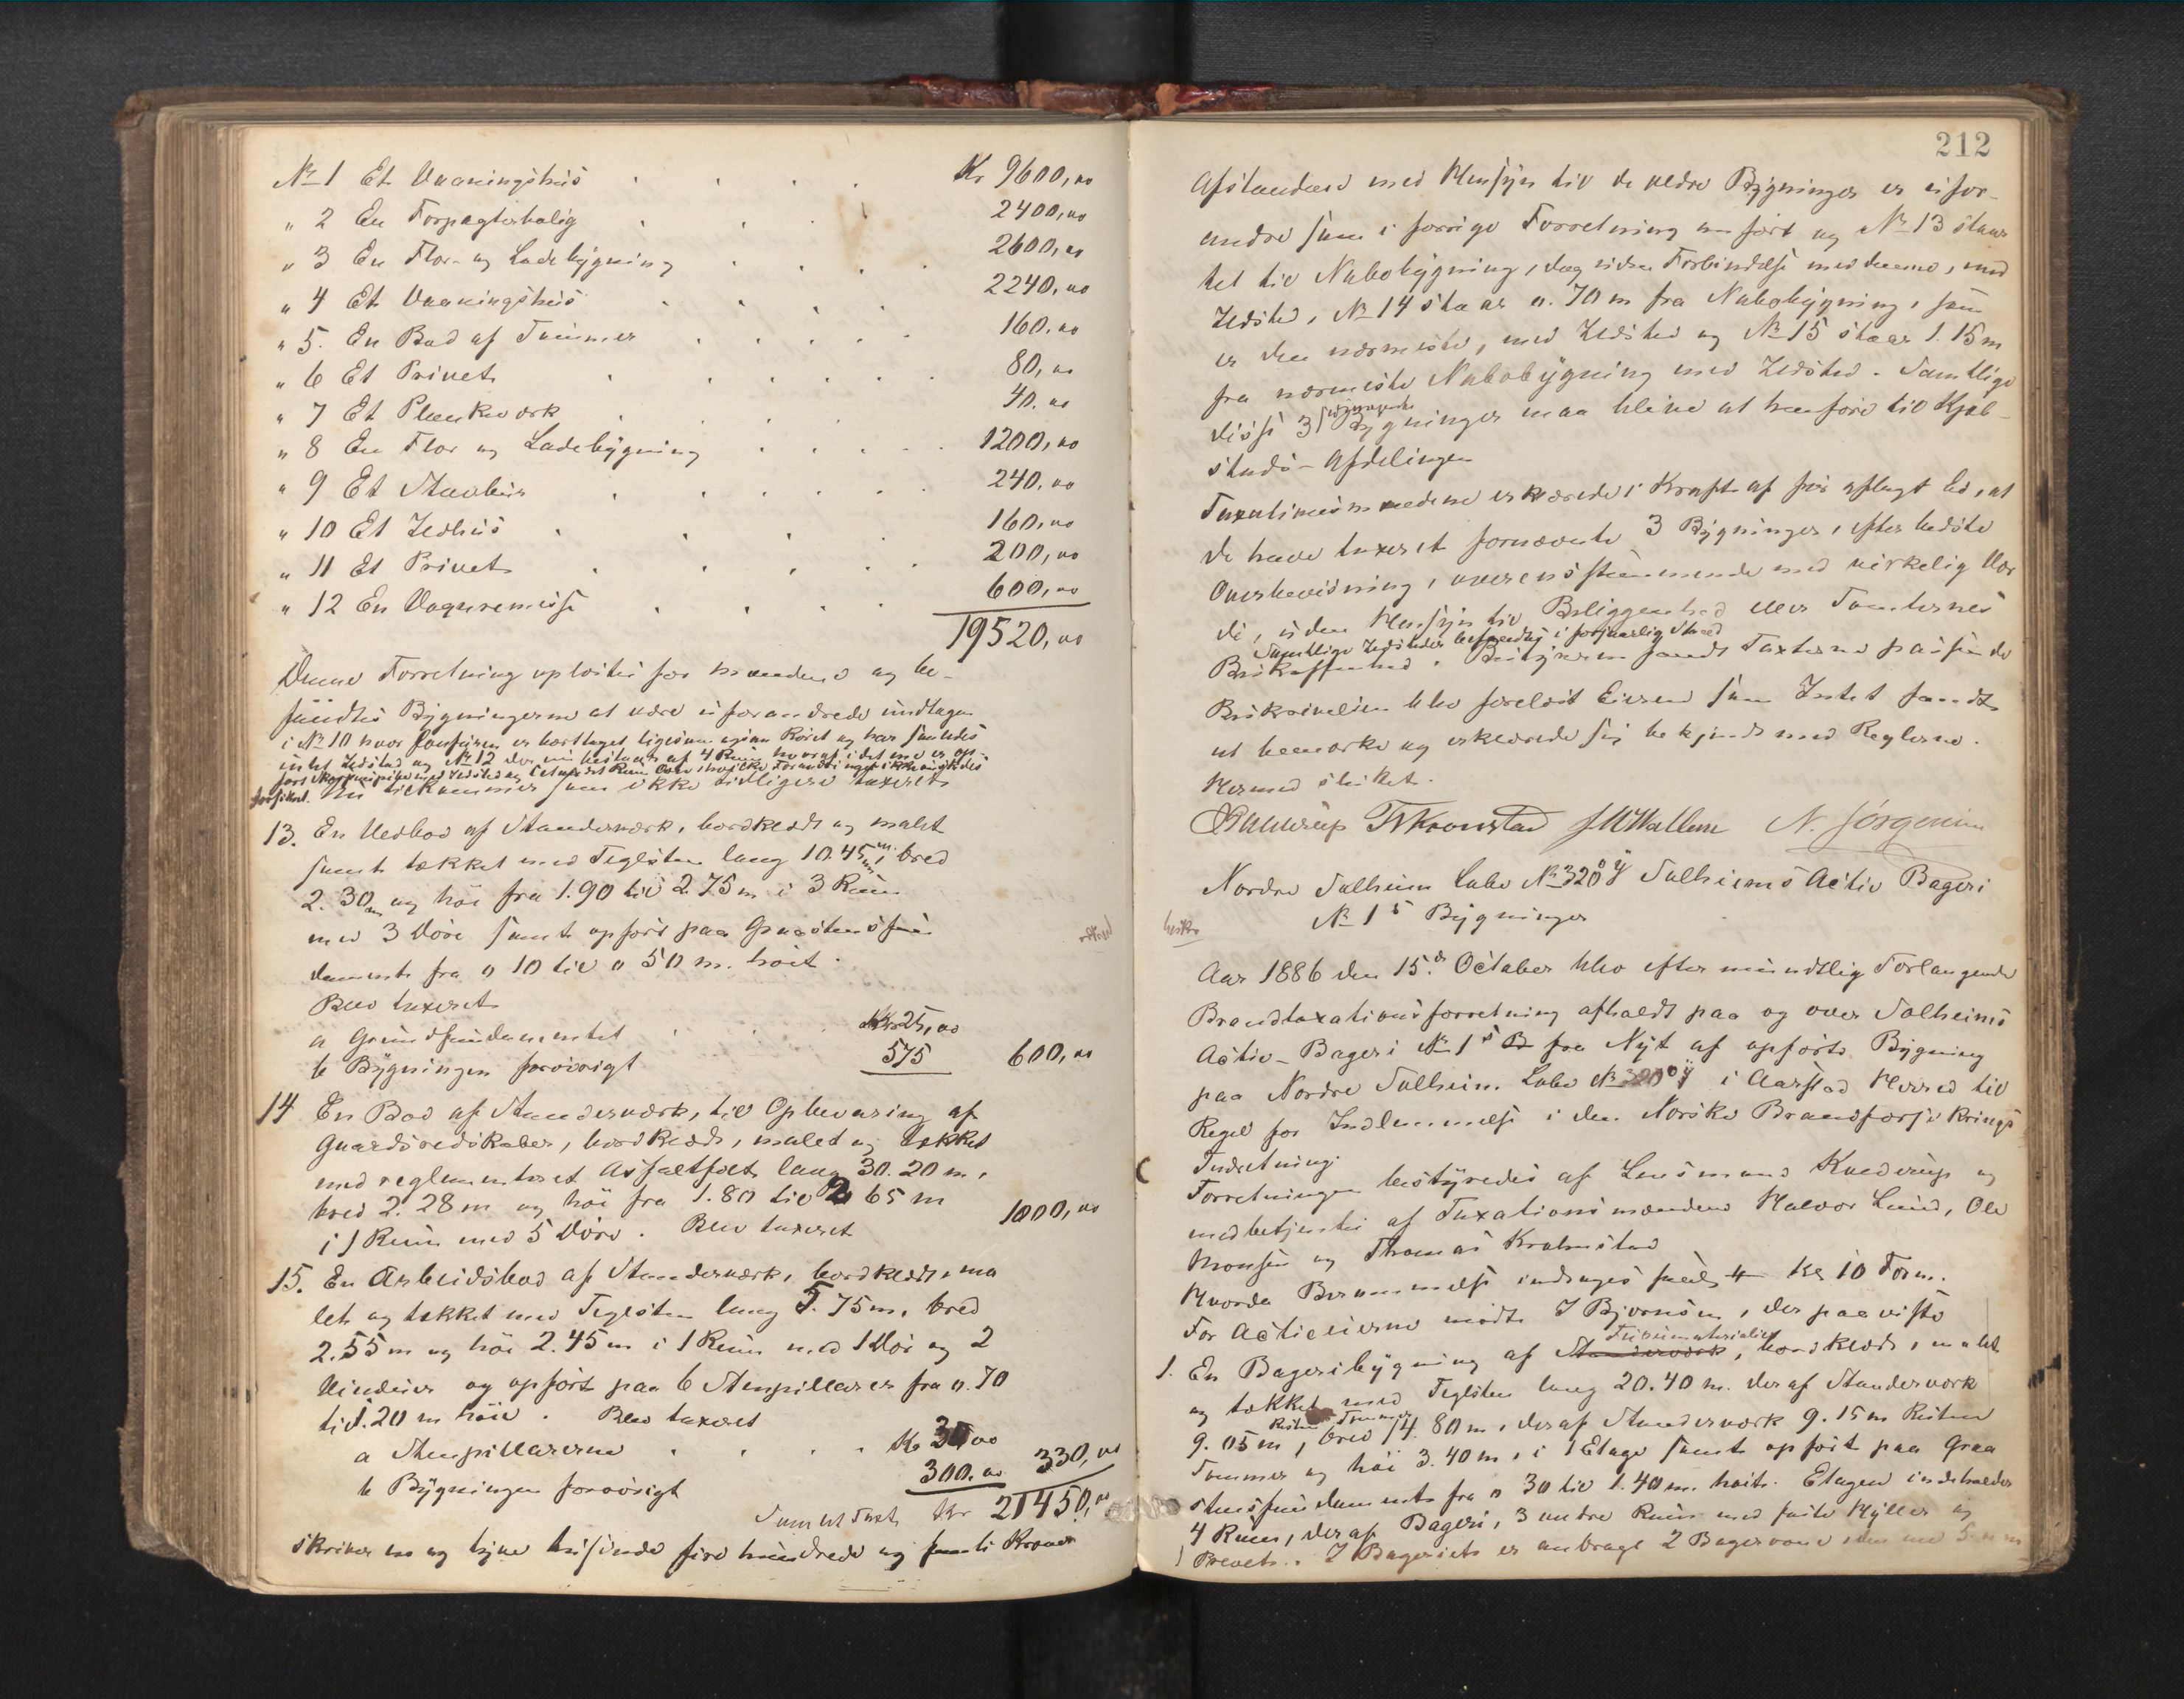 No 1 Et Vaaningshus . . . . Kr 9600,00
" 2 En Forpagterbolig . . . 2400,00
" 3 En Flor- og Ladebygning . . . 2600,00
" 4 Et Vaaningshus . . . . 2240,00
" 5. En Bod af Tømmer . . . . . 160.00
" 6 Et Privet . . . . . . 80,00
" 7 Et Plankværk . . . . 40.00
" 8 En Flor og Ladebygning . . . . . 1200,00
" 9 Et Stabbur . . . . . 240,00
" 10 Et Ildhus . . . . 160,00
" 11 Et Privet . . . . 200,00
" 12 En Vognremisse . . . . 600,00
19520,00
Denne Forretning oplæstes for Mændene og be-
fandtes Bygningerne at være uforandrede undtagen
i No 10 hvor er borttaget ligesom og har saaledes
intet Ildsted og No 12 der nu bestaar af 4 Rum, hvoraf i det ene er op-
ført Skorstenspibe med Ildsted og
forsikret. Nu tilkommer som ikke tidligere taxeret
13. En Vedbod af Standerværk, bordklædt og malet
samt tækket med Teglsten lang 10.45 m, bred
2.30 m og høi fra 1.90 til 2.75 m i 3 Rum
med 3 Døre samt opført paa Graastensfun
dament fra 0 10 til 0 50 m. høit.
Blev taxeret
a Grundfundamentet . . . Kr 25,00
b Bygningen forøvrigt 575 600,00
14 En Bod af Standerværk, til Opbevaring af
Gaardsredskaber, bordklædt, malet og tækket
med reglementeret Asfaltfilt lang 30.20 m,
bred 2.28 m og høi fra 1.80 til 2 65 m
i 1 Rum med 5 Døre. Blev taxeret 1000,00
15. En Arbeidsbod af Standerværk, bordklædt, ma
let og tækket med Teglsten lang 5.75 m, bred
2.55 m og høi 2.45 m i 1 Rum med 1 Dør og 2
Vinduer og opført paa 6 Stenpillarer fra 0.70
til 1.20 m høie. Blev taxeret
a Stenpillarerne . . . . Kr 30,00
b Bygningen forøvrigt 300.00 330,00
Samlet Taxt Kr 21450,00
skriver en og tyve tusinde fire hundrede og femti Kroner
212
Afstanden med Hensyn til de ældre Bygninger er ufor-
andre som i forrige Forretning anført og No 13 staar
tæt til Nabobygning, dog uden Forbindelse med denne, med
Ildsted, No 14 staar 0.70 m fra Nabobygning, som
er den nærmeste, med Ildsted og No 15 staar 1.15 m
fra nærmeste Nabobygning med Ildsted. Samtlige
disse 3 Bygninger maa blive at henføre til Kjøb-
stads-Afdelingen
Taxationsmændene erklærede i Kraft af før aflagt Ed, at
de have taxeret fornævnte 3 Bygninger, efter bedste
Overbevisning, overensstemmende med virkelig Vær
di, uden Hensyn til Beliggenhed eller Tomternes
Samtlige Ildsteder befandtes i forsvarlig Stand
Beskaffenhed. Bestyreren fandt Taxterne passende
Beskrivelsen blev forelæst Eieren som Intet fandt
at bemærke og erklærede sig bekjendt med Reglerne.
Hermed sluttet.
Knudtrup T Kronstad J M Wallem N. Jørgensen
Nordre Solheim Løbe No 320 Solheims Actie Bageri
No 1 Bygninger
Aar 1886 den 15de October blev efter mundtlig Forlangende
Brandtaxationsforretning afholdt paa og over Solheims
Actie-Bageri No 1 fra Nyt af opførte Bygning
paa Nordre Solheim Løbe No 320 i Aarstad Herred til
Regel for Indlemmelse i den Norske Brandforsikrings
Indretning.
Forretningen bestyredes af Lensmand Knudtrup og
medbetjentes af Taxationsmændene Halvor Lund, Ole
Monsen og Thomas Kronstad
Hvorda Berammelse indtoges Kl 10 Form.
For Actieeierne mødte J Bjørnsen, der paaviste
1. En Bageribygning af Standerværk, bordklædt, malet
og tækket med Teglsten lang 20.40 m. deraf Standerværk
9.05 m, bred 14.80 m, deraf Standerværk 9.15 m Resten
Tømmer og høi 3.40 m, i 1 Etage samt opført paa Graa
stensfundament fra 0 30 til 1.40 m. høit. Etagen indeholder
4 Rum, deraf Bageri, 3 andre Rum med faste Hyller og
1 Privet. I Bageriet er anbragt 2 Bagerovne, den ene